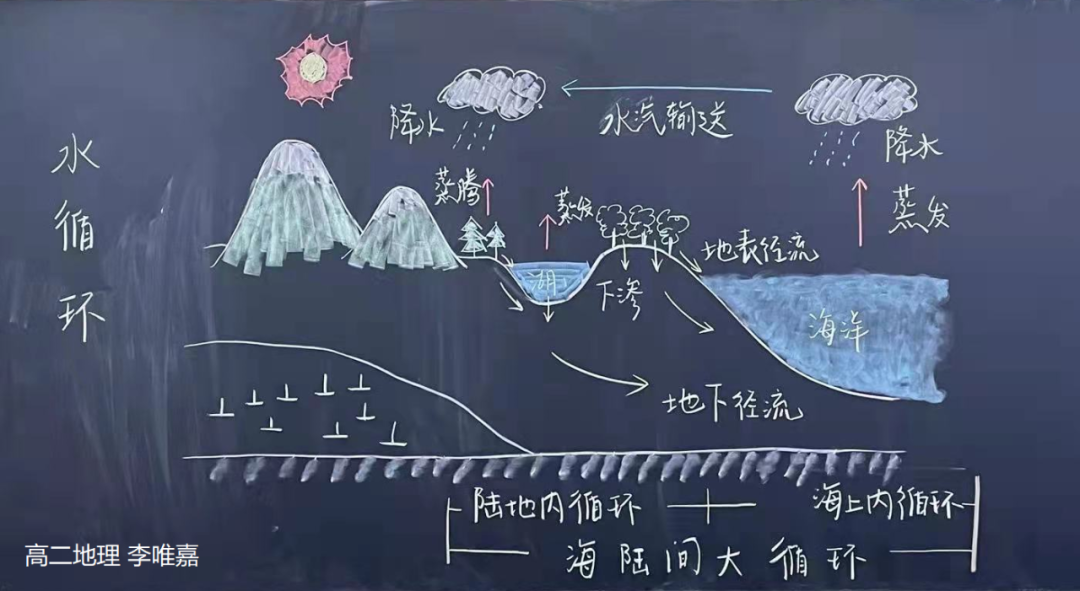 水循环
降水
水汽输送
降水
蒸腾
蒸发
蒸发
地表径流
湖
下渗
海洋
地下径流
陆地内循环
海上内循环
海陆间大循环
高二地理 李唯嘉